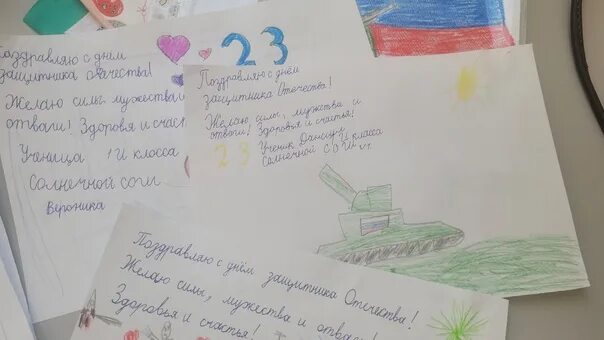 Поздравляю с днём
защитника отечества!
Желаю силы мужества
отваги! Здоровья и счаст
Ученица 1И класса
Солнечной СОШ
Вероника
23
Поздравляю с днём
защитника Отечества!
Желаю силы, мужества и
отваги! Здоровья и счастья!
23 Ученик 1И класса
Солнечной СОШ
Поздравляю с днём защитника Отечества!
Желаю силы, мужества и отваги!
Здоровья и счастья!